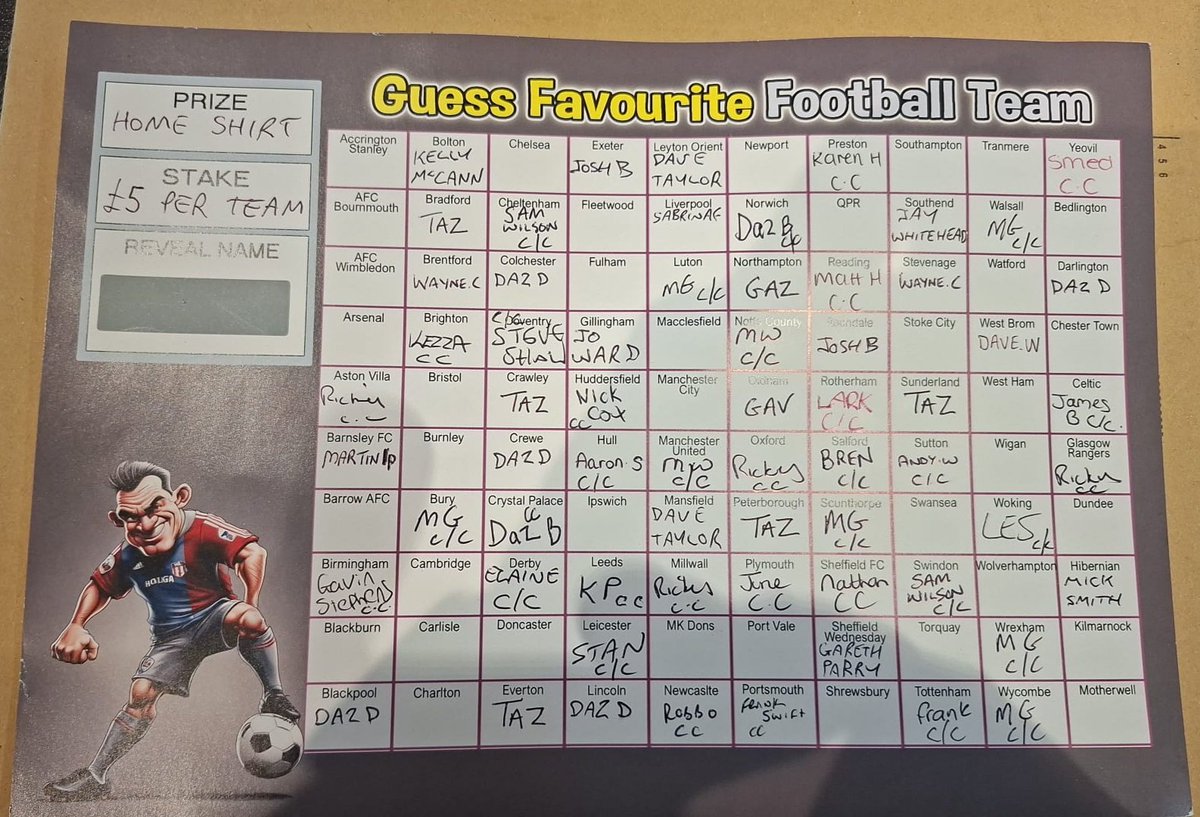 Guess Favourite Football Team
PRIZE
HOME SHIRT
STAKE
£5 PER TEAM
REVEAL NAME
Accrington
Stanley
Bolton
KELLY
McCANN
Chelsea
Exeter
JOSH B
Leyton Orient
DAVE
TAYLOR
Newport
Preston
Karen H
C.C
Southampton
Tranmere
Yeovil
Smed
C.C
AFC
Bournmouth
Bradford
TAZ
Cheltenham
SAM
WILSON
C/C
Fleetwood
Liverpool
SABRINAE
Norwich
Daz B
cc
QPR
Southend
JAY
WHITEHEAD
Walsall
MG
C/C
Bedlington
AFC
Wimbledon
Brentford
WAYNE.C
Colchester
DAZ D
Fulham
Luton
MG C/C
Northampton
GAZ
Reading
Matt H
C.C
Stevenage
WAYNE.C
Watford
Darlington
DAZ D
Arsenal
Brighton
KEZZA
CC
Coventry
STEVE
SHAW
Gillingham
JO
WARD
Macclesfield
Notts County
MW
C/C
Rochdale
JOSH B
Stoke City
West Brom
DAVE.W
Chester Town
Aston Villa
Richy
C.C
Bristol
Crawley
TAZ
Huddersfield
NICK
CC Cox
Manchester
City
Oldham
GAV
Rotherham
LARK
C/C
Sunderland
TAZ
West Ham
Celtic
James
B C/C.
Barnsley FC
MARTIN
Burnley
Crewe
DAZ D
Hull
Aaron.S
C/C
Manchester
United
MW
C/C
Oxford
Ricky
CC
Salford
BREN
C/C
Sutton
ANDY.W
C/C
Wigan
Glasgow
Rangers
Ricky
CC
Barrow AFC
Bury
MG
C/C
Crystal Palace
CC
Daz B
Ipswich
Mansfield
DAVE
TAYLOR
Peterborough
TAZ
Scunthorpe
MG
C/C
Swansea
Woking
LES C/C
Dundee
Birmingham
Gavin
Stephens
C.C.
Cambridge
Derby
ELAINE
C/C
Leeds
KP CC
Millwall
Ricky
C.C
Plymouth
June
C.C
Sheffield FC
Nathan
CC
Swindon
SAM
WILSON
C/C
Wolverhampton
Hibernian
MICK
SMITH
Blackburn
Carlisle
Doncaster
Leicester
STAN
C/C
MK Dons
Port Vale
Sheffield
Wednesday
GARETH
PARRY
Torquay
Wrexham
MG
C/C
Kilmarnock
Blackpool
DAZ D
Charlton
Everton
TAZ
Lincoln
DAZ D
Newcaslte
ROBBO
CC
Portsmouth
FRANK
SWIFT
CC
Shrewsbury
Tottenham
frank
C/C
Wycombe
MG
C/C
Motherwell
HOLGA
4 5 6